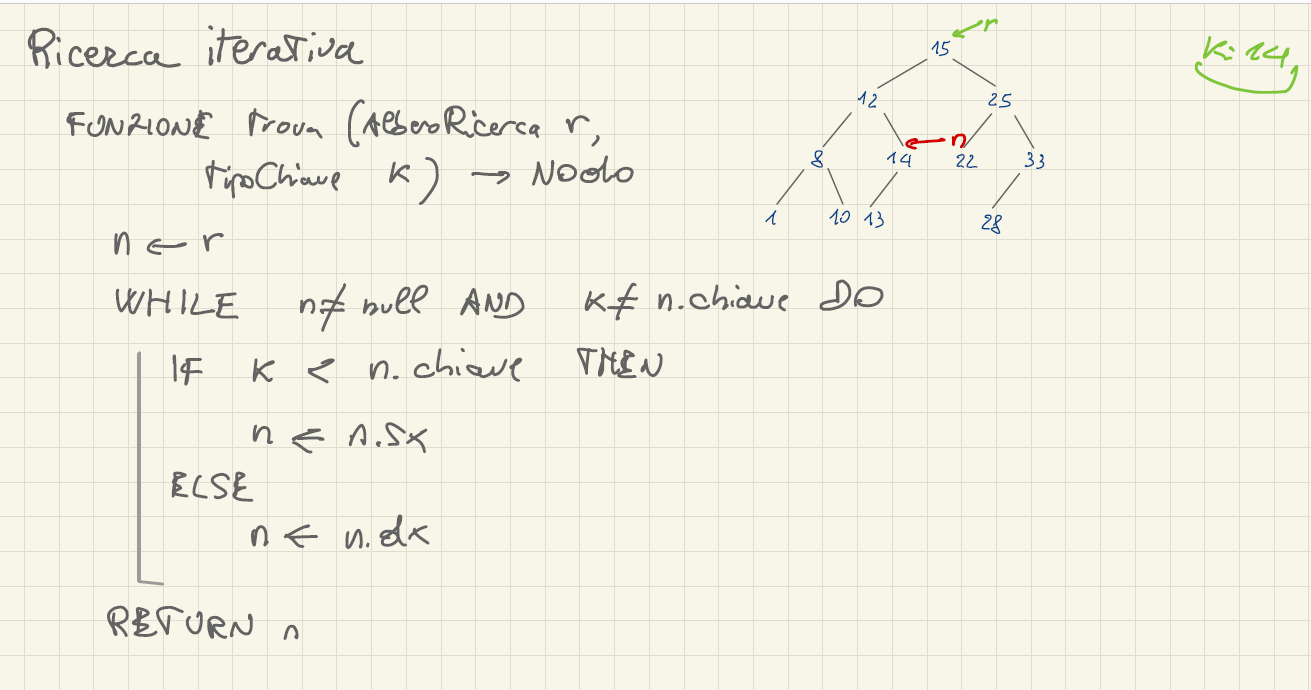 Ricerca iterativa
FUNZIONE Trova (AlberoRicerca r,
TipoChiave K) → Nodo
n ← r
WHILE n ≠ null AND K ≠ n.chiave DO
IF K < n.chiave THEN
n ← n.sx
ELSE
n ← n.dx
RETURN n
r
15
K: 14
12 25
8 14 ← n 22 33
1 10 13 28